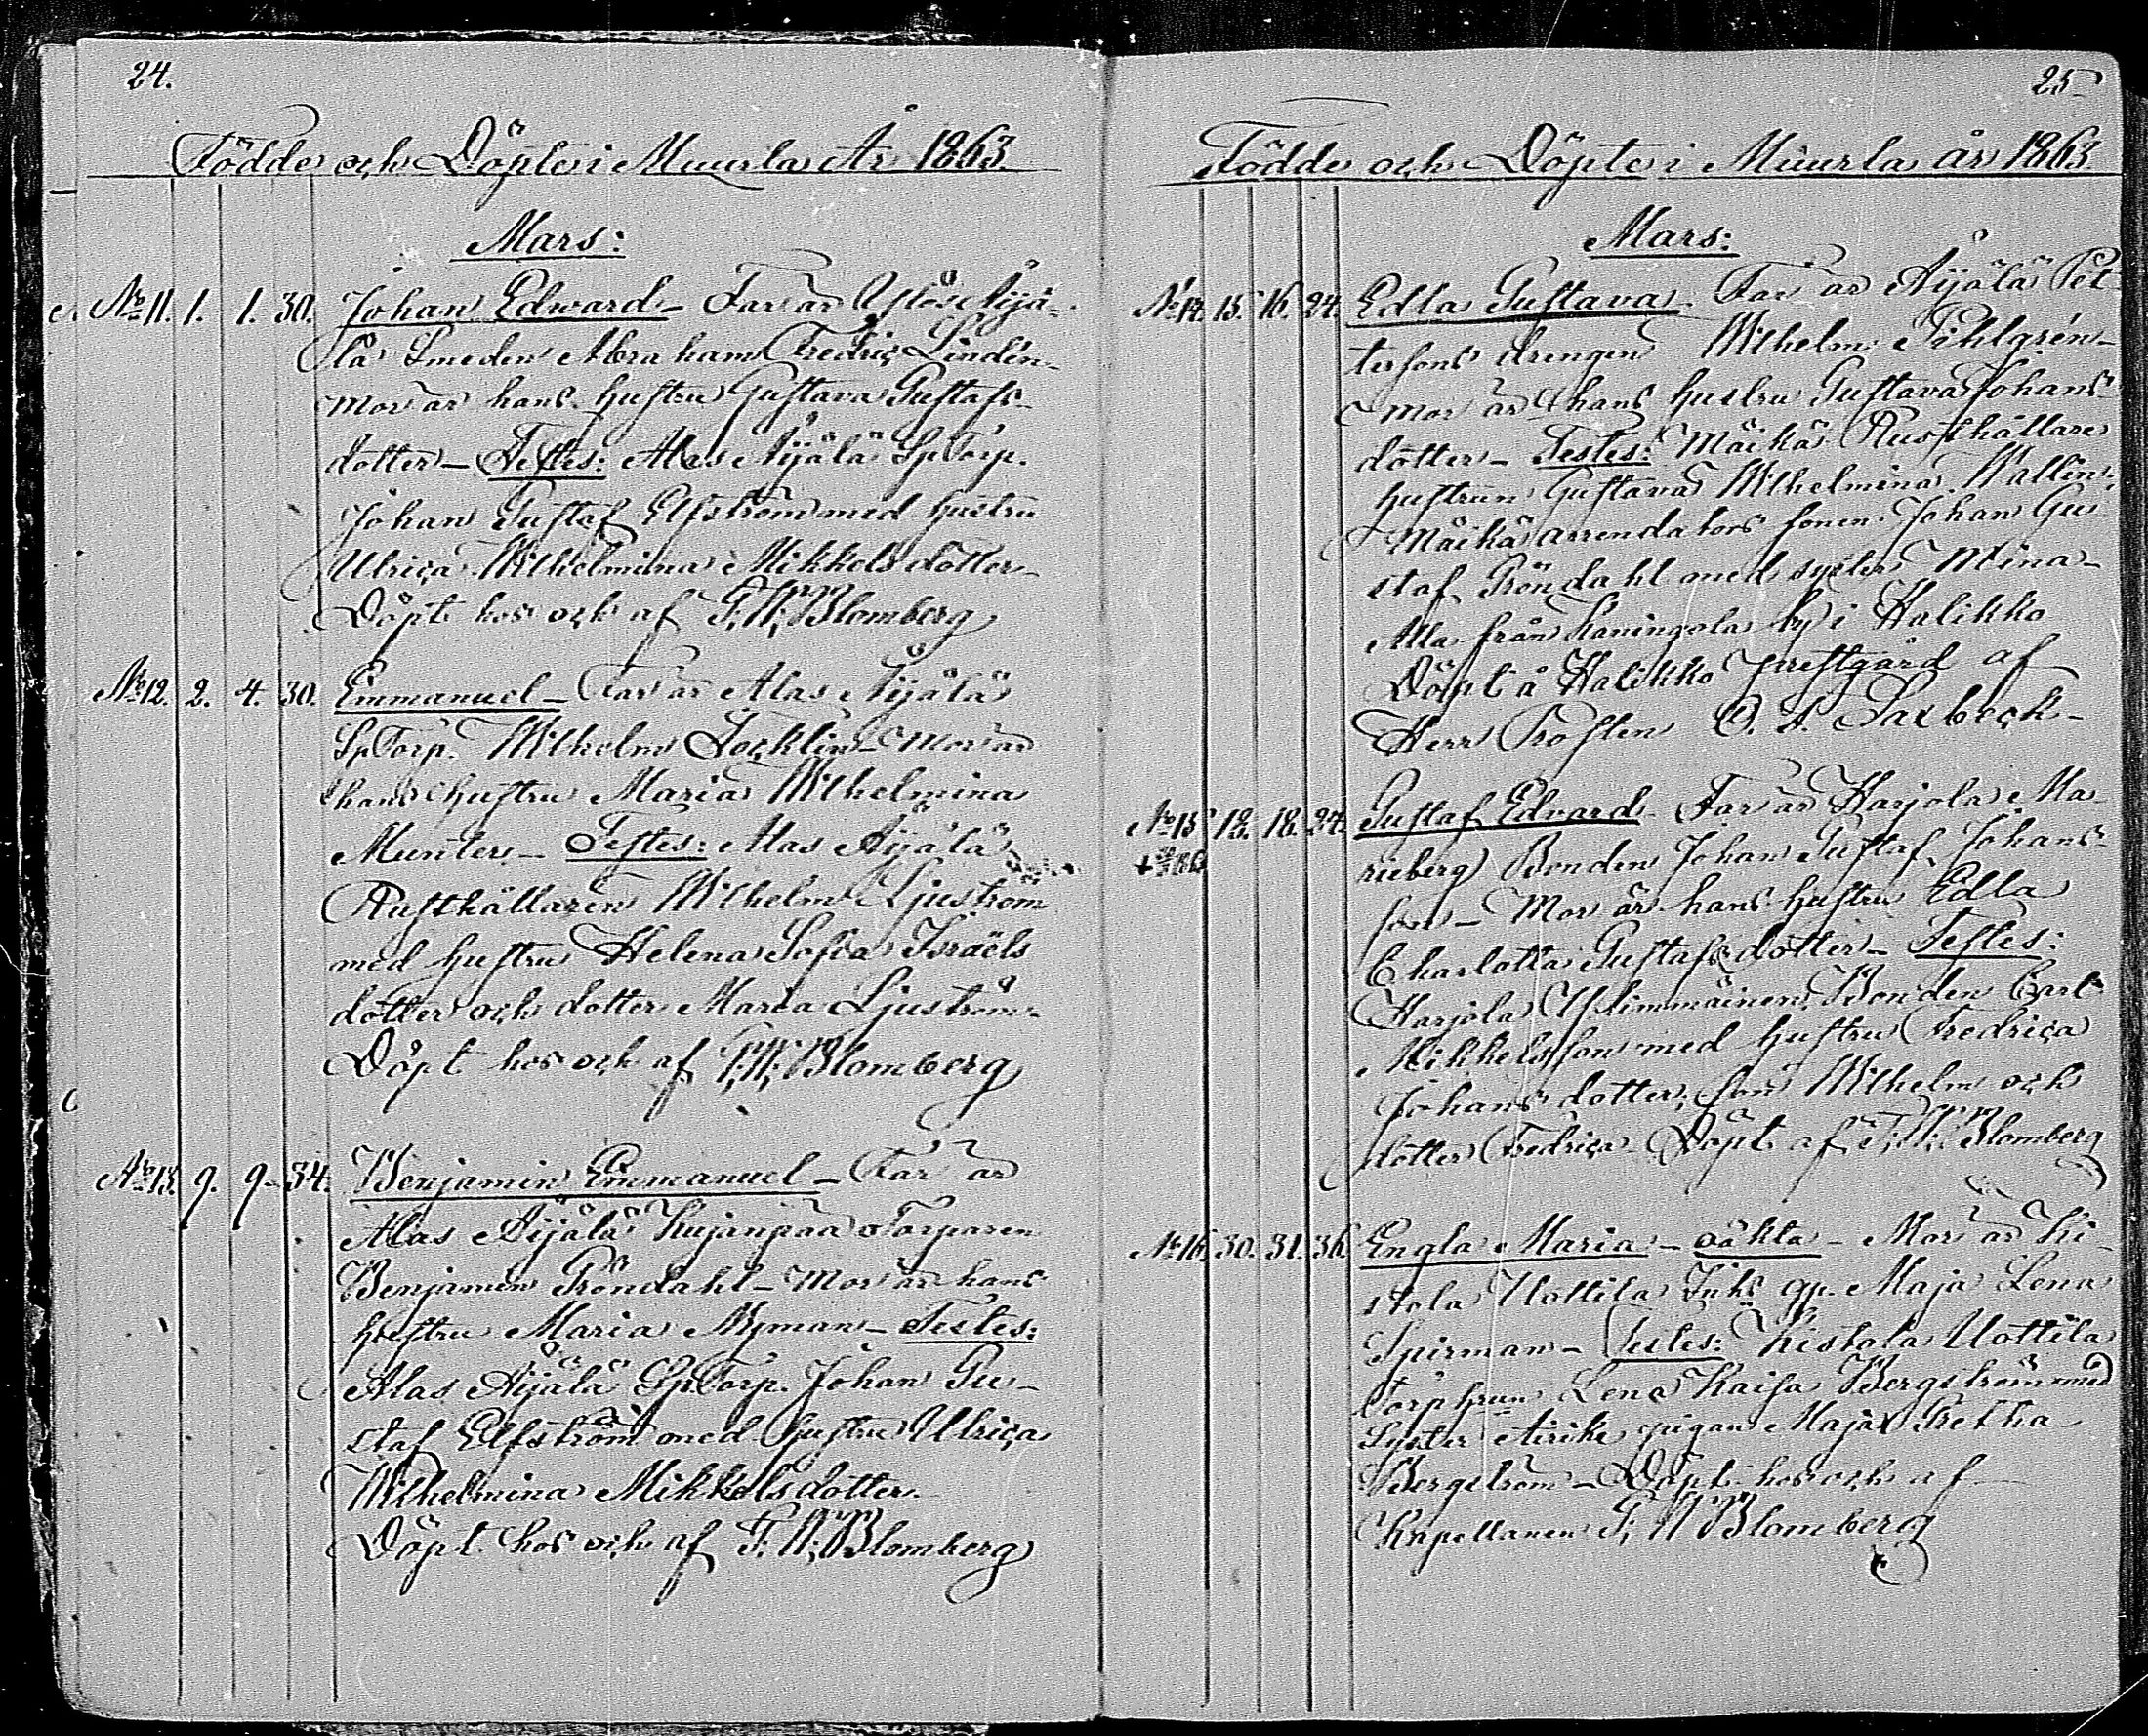 24.
Födde och Döpte i Muurla År 1863.
Mars:
No 11. 1. 1. 30. Johan Edward – Far är Ylös Äijä-
lä Smeden Abraham Fredric Lindén –
mor är hans hustru Gustava Gustafs-
dotter – Testes: Alas Äijälä SpTorp.
Johan Gustaf Elfström med hustru
Ulrica Wilhelmina Mikkels dotter –
Döpt hos och af F. W. Blomberg
No 12. 2. 4. 30. Emmanuel – Far är Alas Äijälä
SpTorp. Wilhelm Löcklin – Mor är
hans hustru Maria Wilhelmina
Munter – Testes: Alas Äijälä
Rusthållaren Wilhelm Ljuström
med hustru Helena Sofia Israëls
dotter och dotter Maria Ljuström –
Döpt hos och af F. W. Blomberg
No 13. 9. 9. 34. Benjamin Emmanuel – Far är
Alas Äijälä Kujanpää Torparen
Benjamin Gröndahl – Mor är hans
hustru Maria Nyman – Testes:
Alas Äijälä SpTorp. Johan Gu-
staf Elfström med hustru Ulrica
Wilhelmina Mikkelsdotter.
Döpt hos och af F. W. Blomberg
25
Födde och Döpte i Muurla år 1863
Mars:
No 14. 15. 16. 24. Edla Gustava. Far är Äijälä Pet-
tersons drengen Wilhelm Pihlgrén –
Mor är hans hustru Gustava Johans
dotter – Testes: Märkä Rusthållare
hustrun Gustava Wilhelmina Wallin:
Märkä arrendators sonen Johan Gu
staf Gröndahl med syster Mina –
Alla från Kaningola by i Halikko
Döpt å Halikko prestgård af
Herr Prosten O. S. Saxbeck –
No 15 12. 18. 24. Gustaf Edvard. Far är Harjola Ma-
rieberg Bonden Johan Gustaf Johans-
son – Mor är hans hustru Edla
Charlotta Gustafsdotter – Testes:
Harjola Ylimmäinen Bonden Carl
Mikkelsson med hustru Fredrica
Johans dotter, son Wilhelm och
dotter Fredrica – Döpt af F. W. Blomberg
No 16. 30. 31. 36. Engla Maria – oäkta – Mor är Ki-
stola Uottila Inhs qp. Maja Lena
Spirman – Testes: Kistola Uottila
Torphrun Lena Kaisa Bergström med
Syster Airike pigan Maja Gretha
Bergström – Döpt hos och af
Kapellanen F. W Blomberg